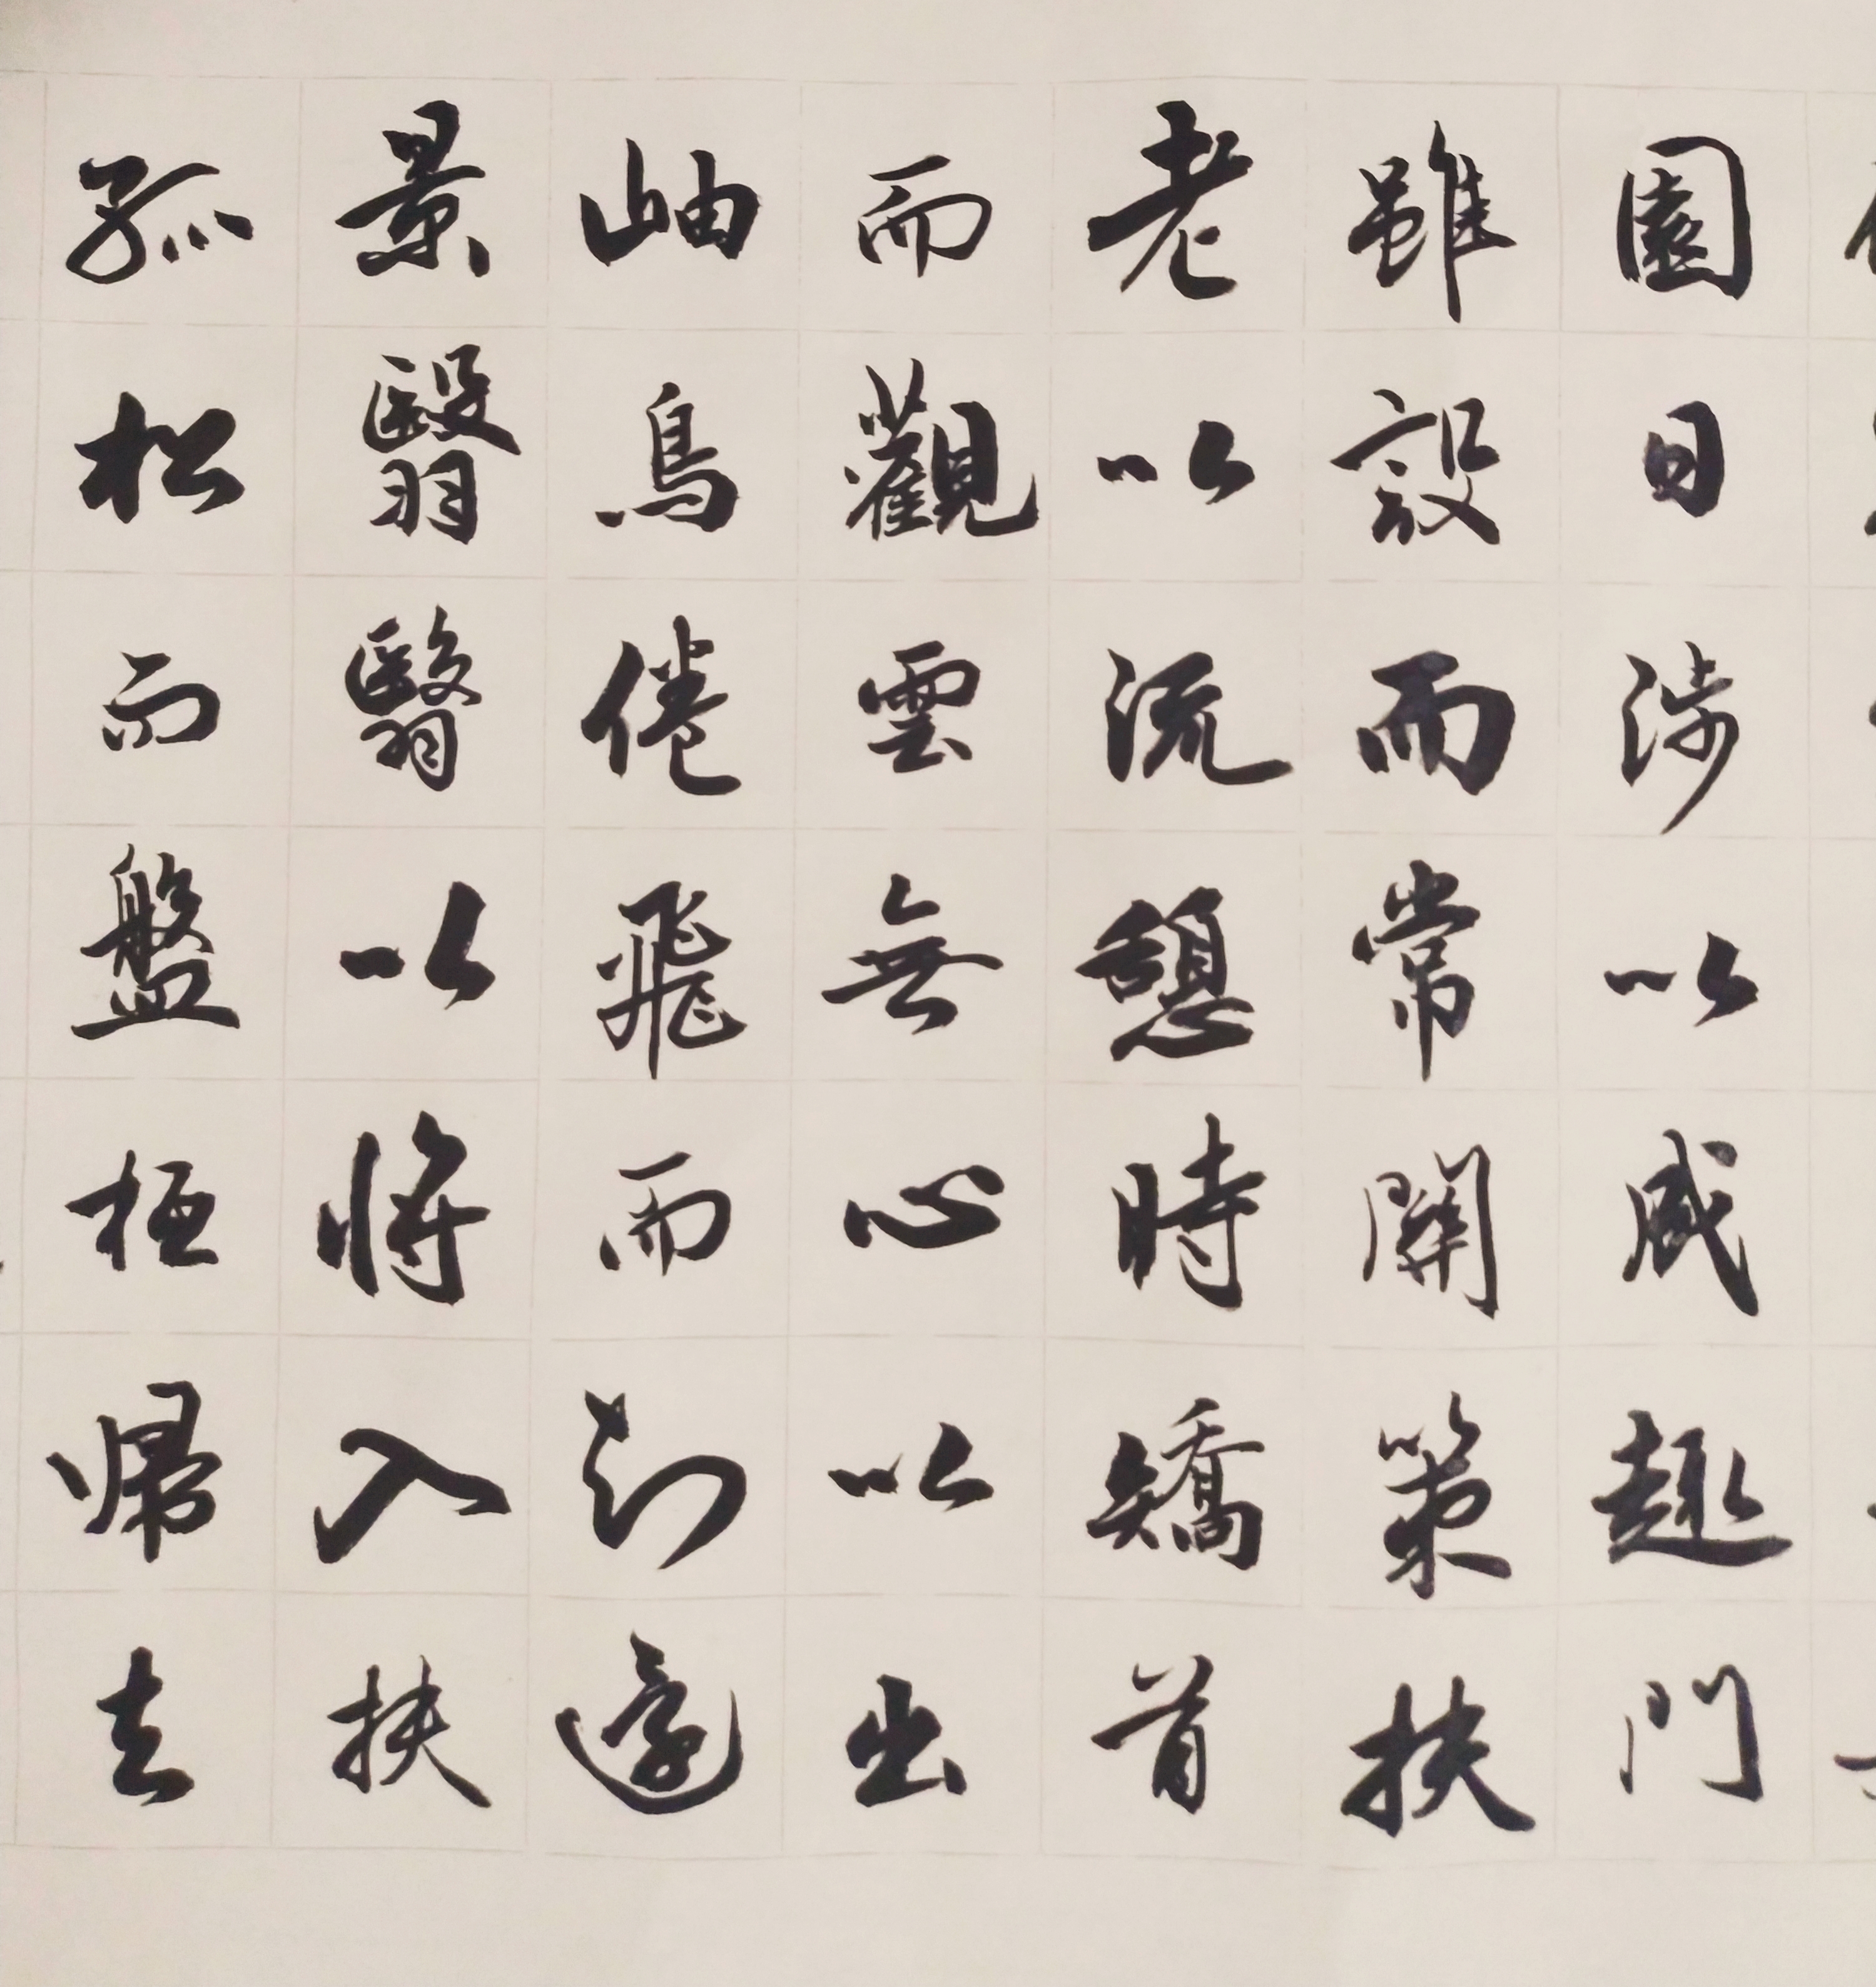 園日涉以成趣門
雖設而常關策扶
老以流憩時矯首
而觀雲無心以出
岫鳥倦飛而知還
景翳翳以將入扶
孤松而盤桓帰去